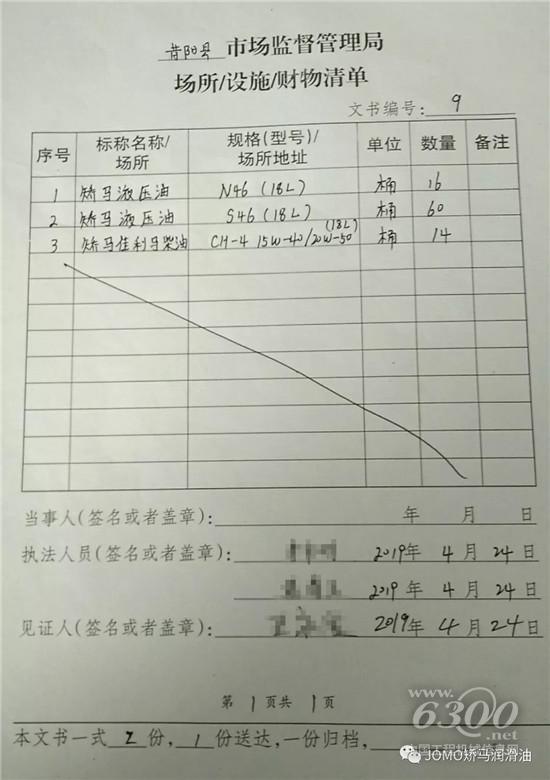 昔阳县 市场监督管理局
场所/设施/财物清单
文书编号: 9
序号 标称名称/场所 规格(型号)/场所地址 单位 数量 备注
1 矫马液压油 N46 (18L) 桶 16
2 矫马液压油 S46 (18L) 桶 60
3 矫马佳利马柴油 CH-4 15W-40/20W-50 (18L) 桶 14
当事人(签名或者盖章): 年 月 日
执法人员(签名或者盖章): 2019年 4月 24日
2019年 4月 24日
见证人(签名或者盖章): 2019年 4月 24日
第 1 页共 1 页
www.6300.net
中国工程机械信息网
本文书一式 2 份, 1 份送达,一份归档,
JOMO矫马润滑油